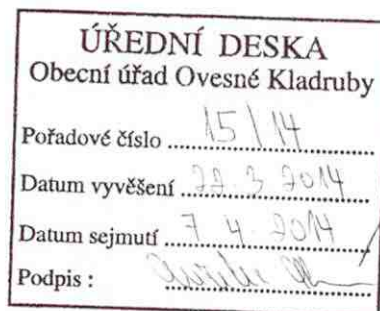 ÚŘEDNÍ DESKA
Obecní úřad Ovesné Kladruby
Pořadové číslo 15/14
Datum vyvěšení 22. 3 2014
Datum sejmutí 7 4. 2014
Podpis :